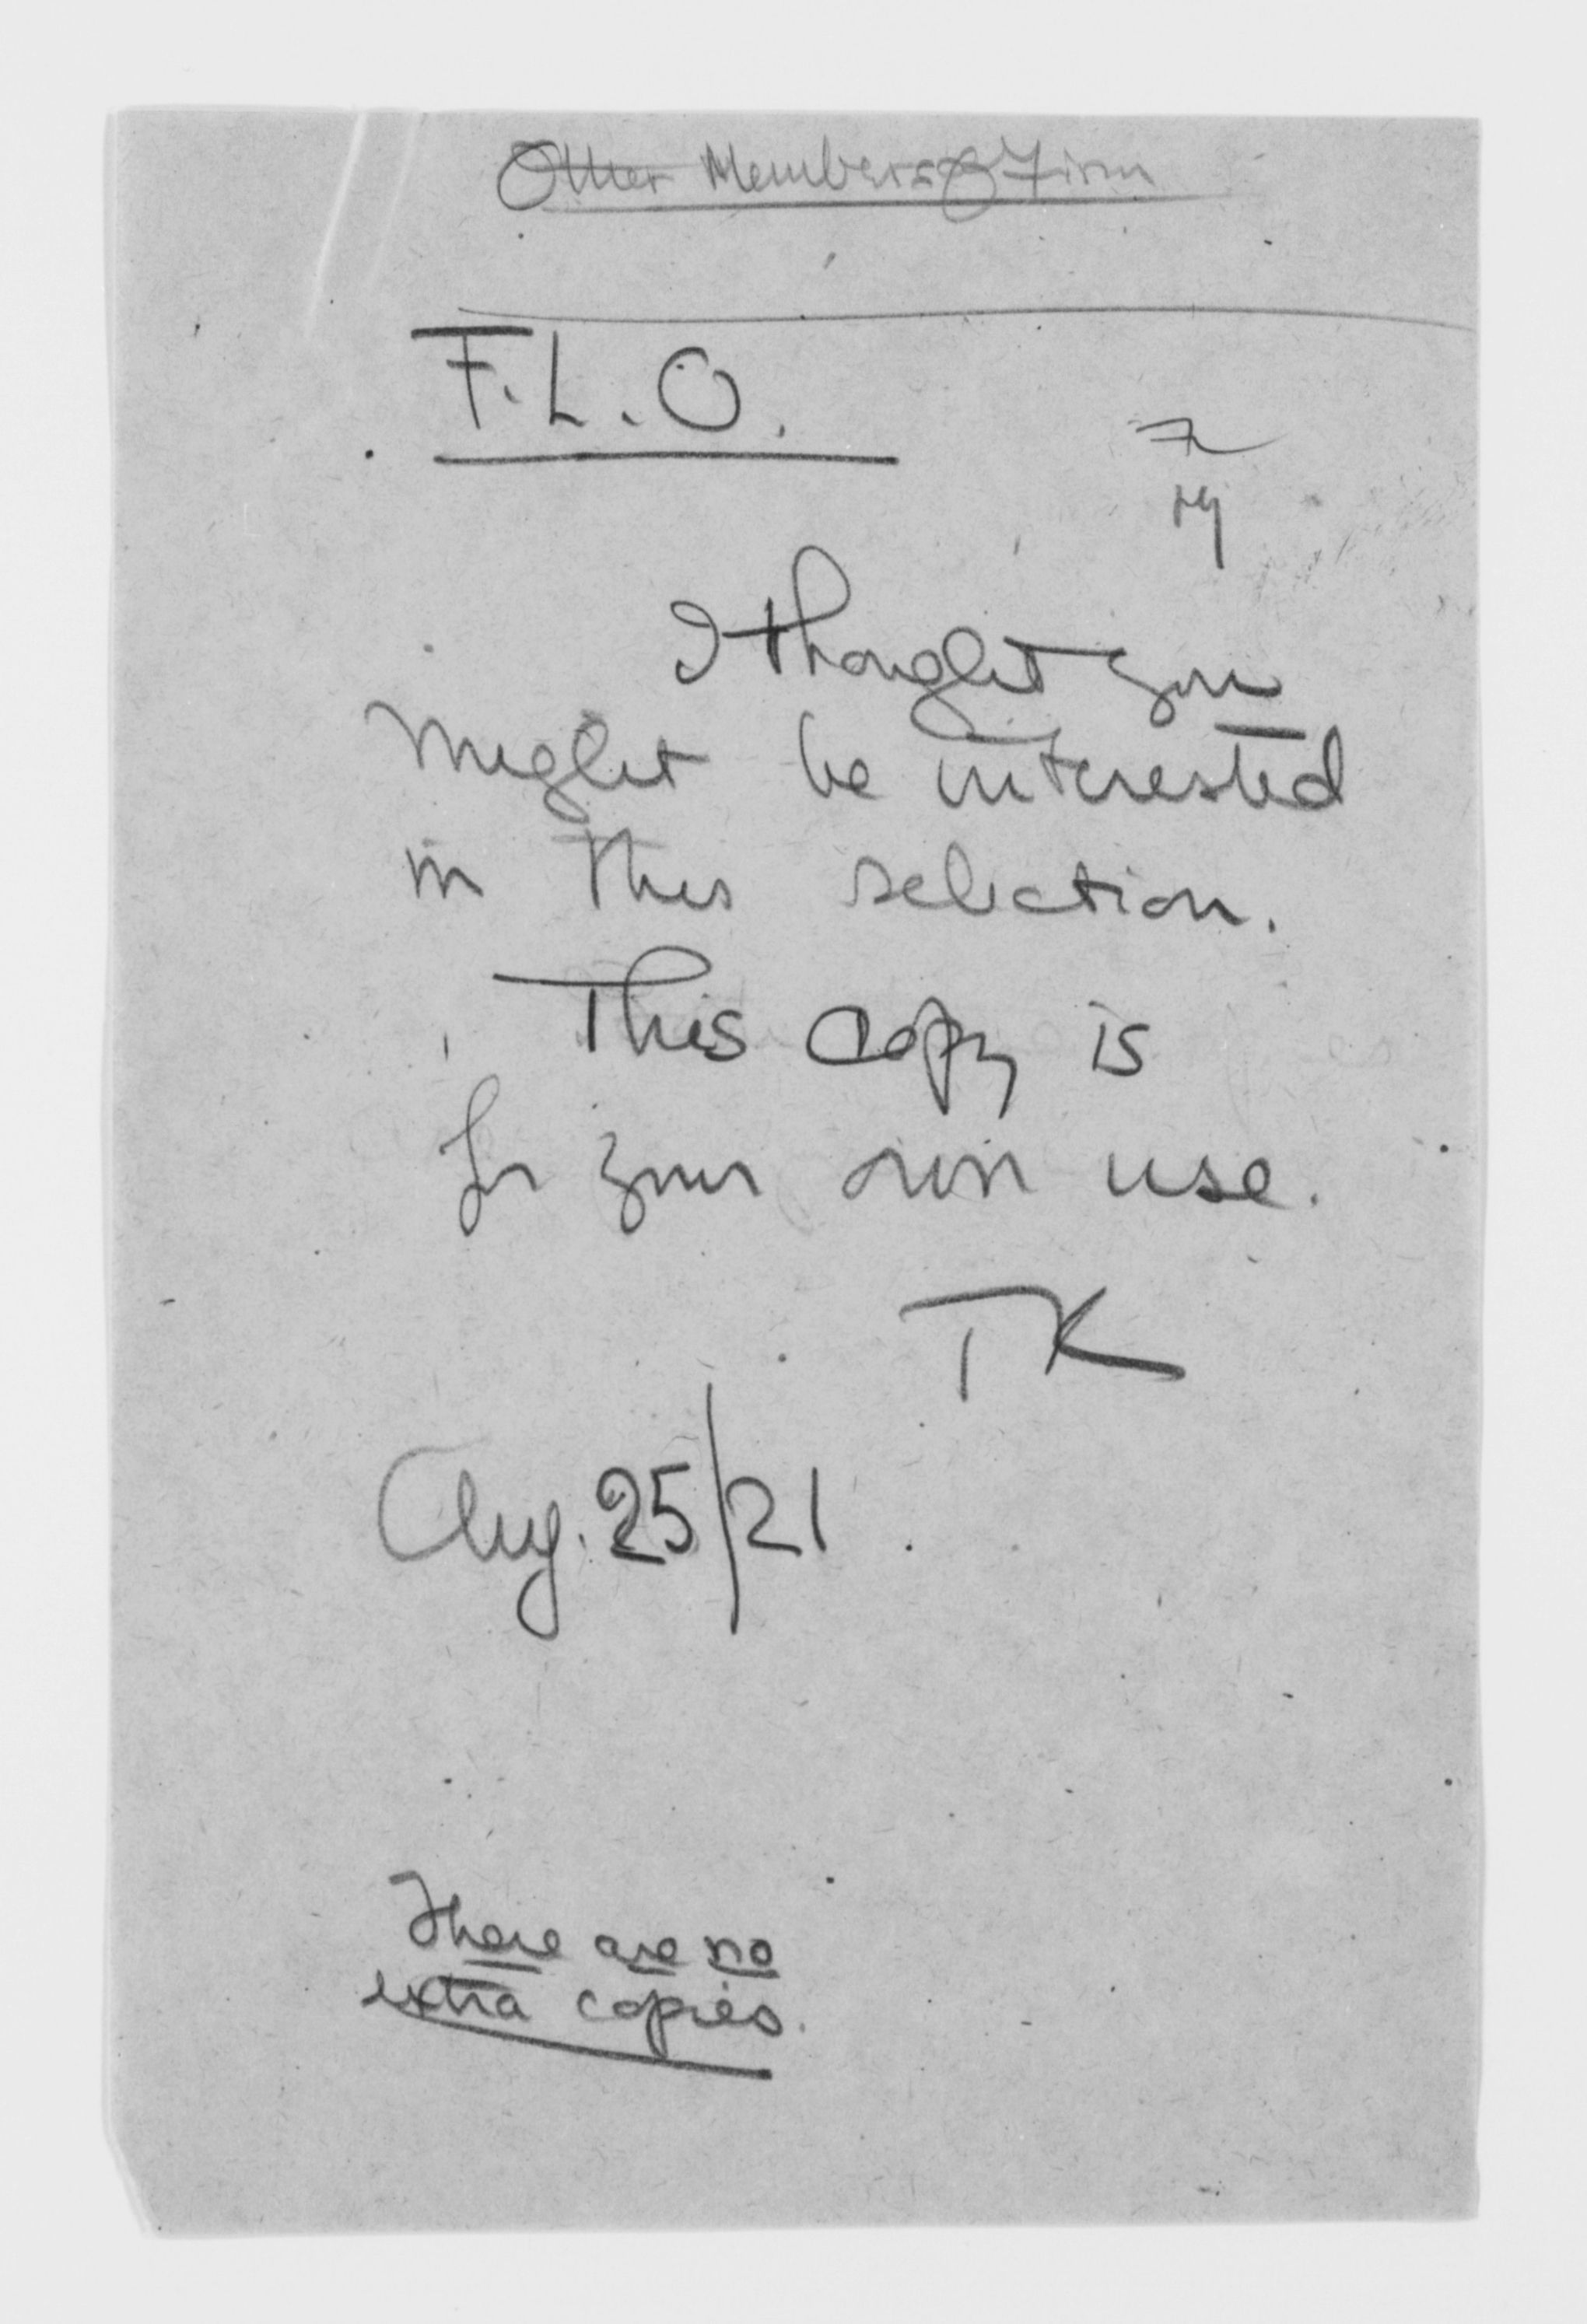 Other Members of Firm
F.L.O.
I thought you
might be interested
in this selection.
This copy is
for your own use.
TK
Aug. 25/21
There are no
extra copies.